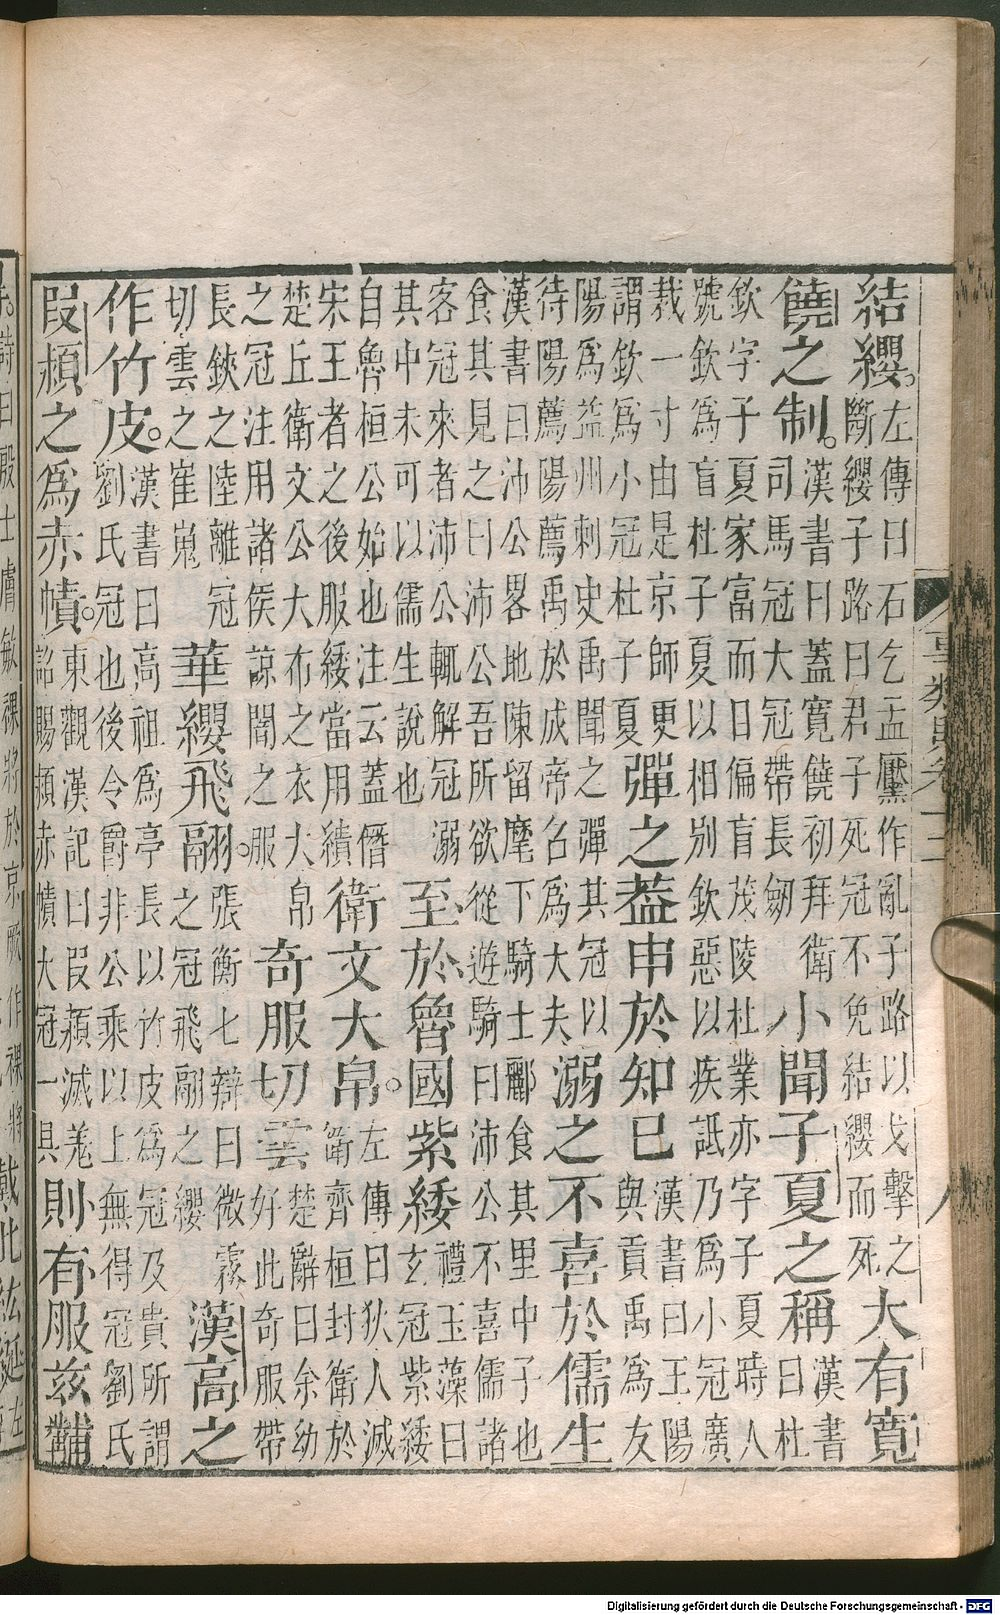 結纓。左傳曰石乞盂黶作亂子路以戈擊之斷纓子路曰君子死冠不免結纓而死大有寬
饒之制。漢書曰蓋寬饒初拜衛司馬冠大冠帶長劒小聞子夏之稱漢書曰杜
欽字子夏家富而日偏盲茂陵杜業亦字子夏時人號欽為盲杜子夏以相別欽惡以疾詆乃為小冠廣
裁一寸由是京師更謂欽為小冠杜子夏彈之葢申於知巳漢書曰王陽與貢禹為友
陽為益州刺史禹聞之彈其冠以待陽薦陽薦禹於成帝召為大夫溺之不喜於儒生
漢書曰沛公畧地陳留麾下騎士酈食其里中子也食其見之曰沛公吾所欲從遊騎曰沛公不喜儒諸
客冠來者沛公輒解冠溺其中未可以儒生說也至於魯國紫緌禮玉藻曰玄冠紫緌
自魯桓公始也注云蓋僭宋王者之後服緌當用繢衛文大帛。左傳曰狄人滅衛齊桓封衛於
楚丘衛文公大布之衣大帛之冠注用諸侯諒闇之服奇服切雲楚辭曰余幼好此奇服帶
長鋏之陸離冠切雲之崔嵬華纓飛翮。張衡七辯曰微霧之冠飛翮之纓漢高之
作竹皮。漢書曰高祖為亭長以竹皮為冠及貴所謂劉氏冠也後令爵非公乘以上無得冠劉氏
叚熲之為赤幘。東觀漢記曰叚熲滅羗詔賜熲赤幘大冠一具則有服兹黼
詩曰殷士膚敏祼將於京厥作祼將戴此紘綖左
Digitalisierung gefördert durch die Deutsche Forschungsgemeinschaft - DFG